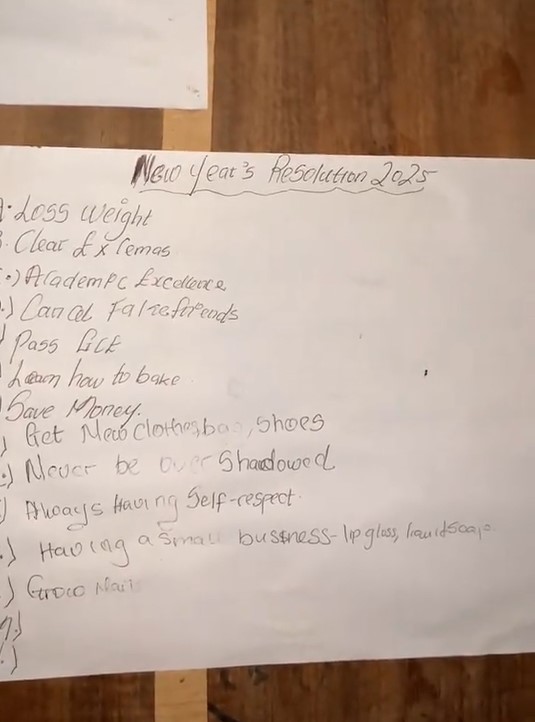 New Year's Resolution 2025
Loss weight
Clear Exzemas
.) Academic Excellence
.) Cancel False friends
Pass GCE
Learn how to bake
Save Money.
) Get New Clothes, bag, Shoes
.) Never be over Shadowed
) Always Having Self-respect.
.) Having a Small business - lip gloss, liquid Soap
.) Grow Nail
.)
.)